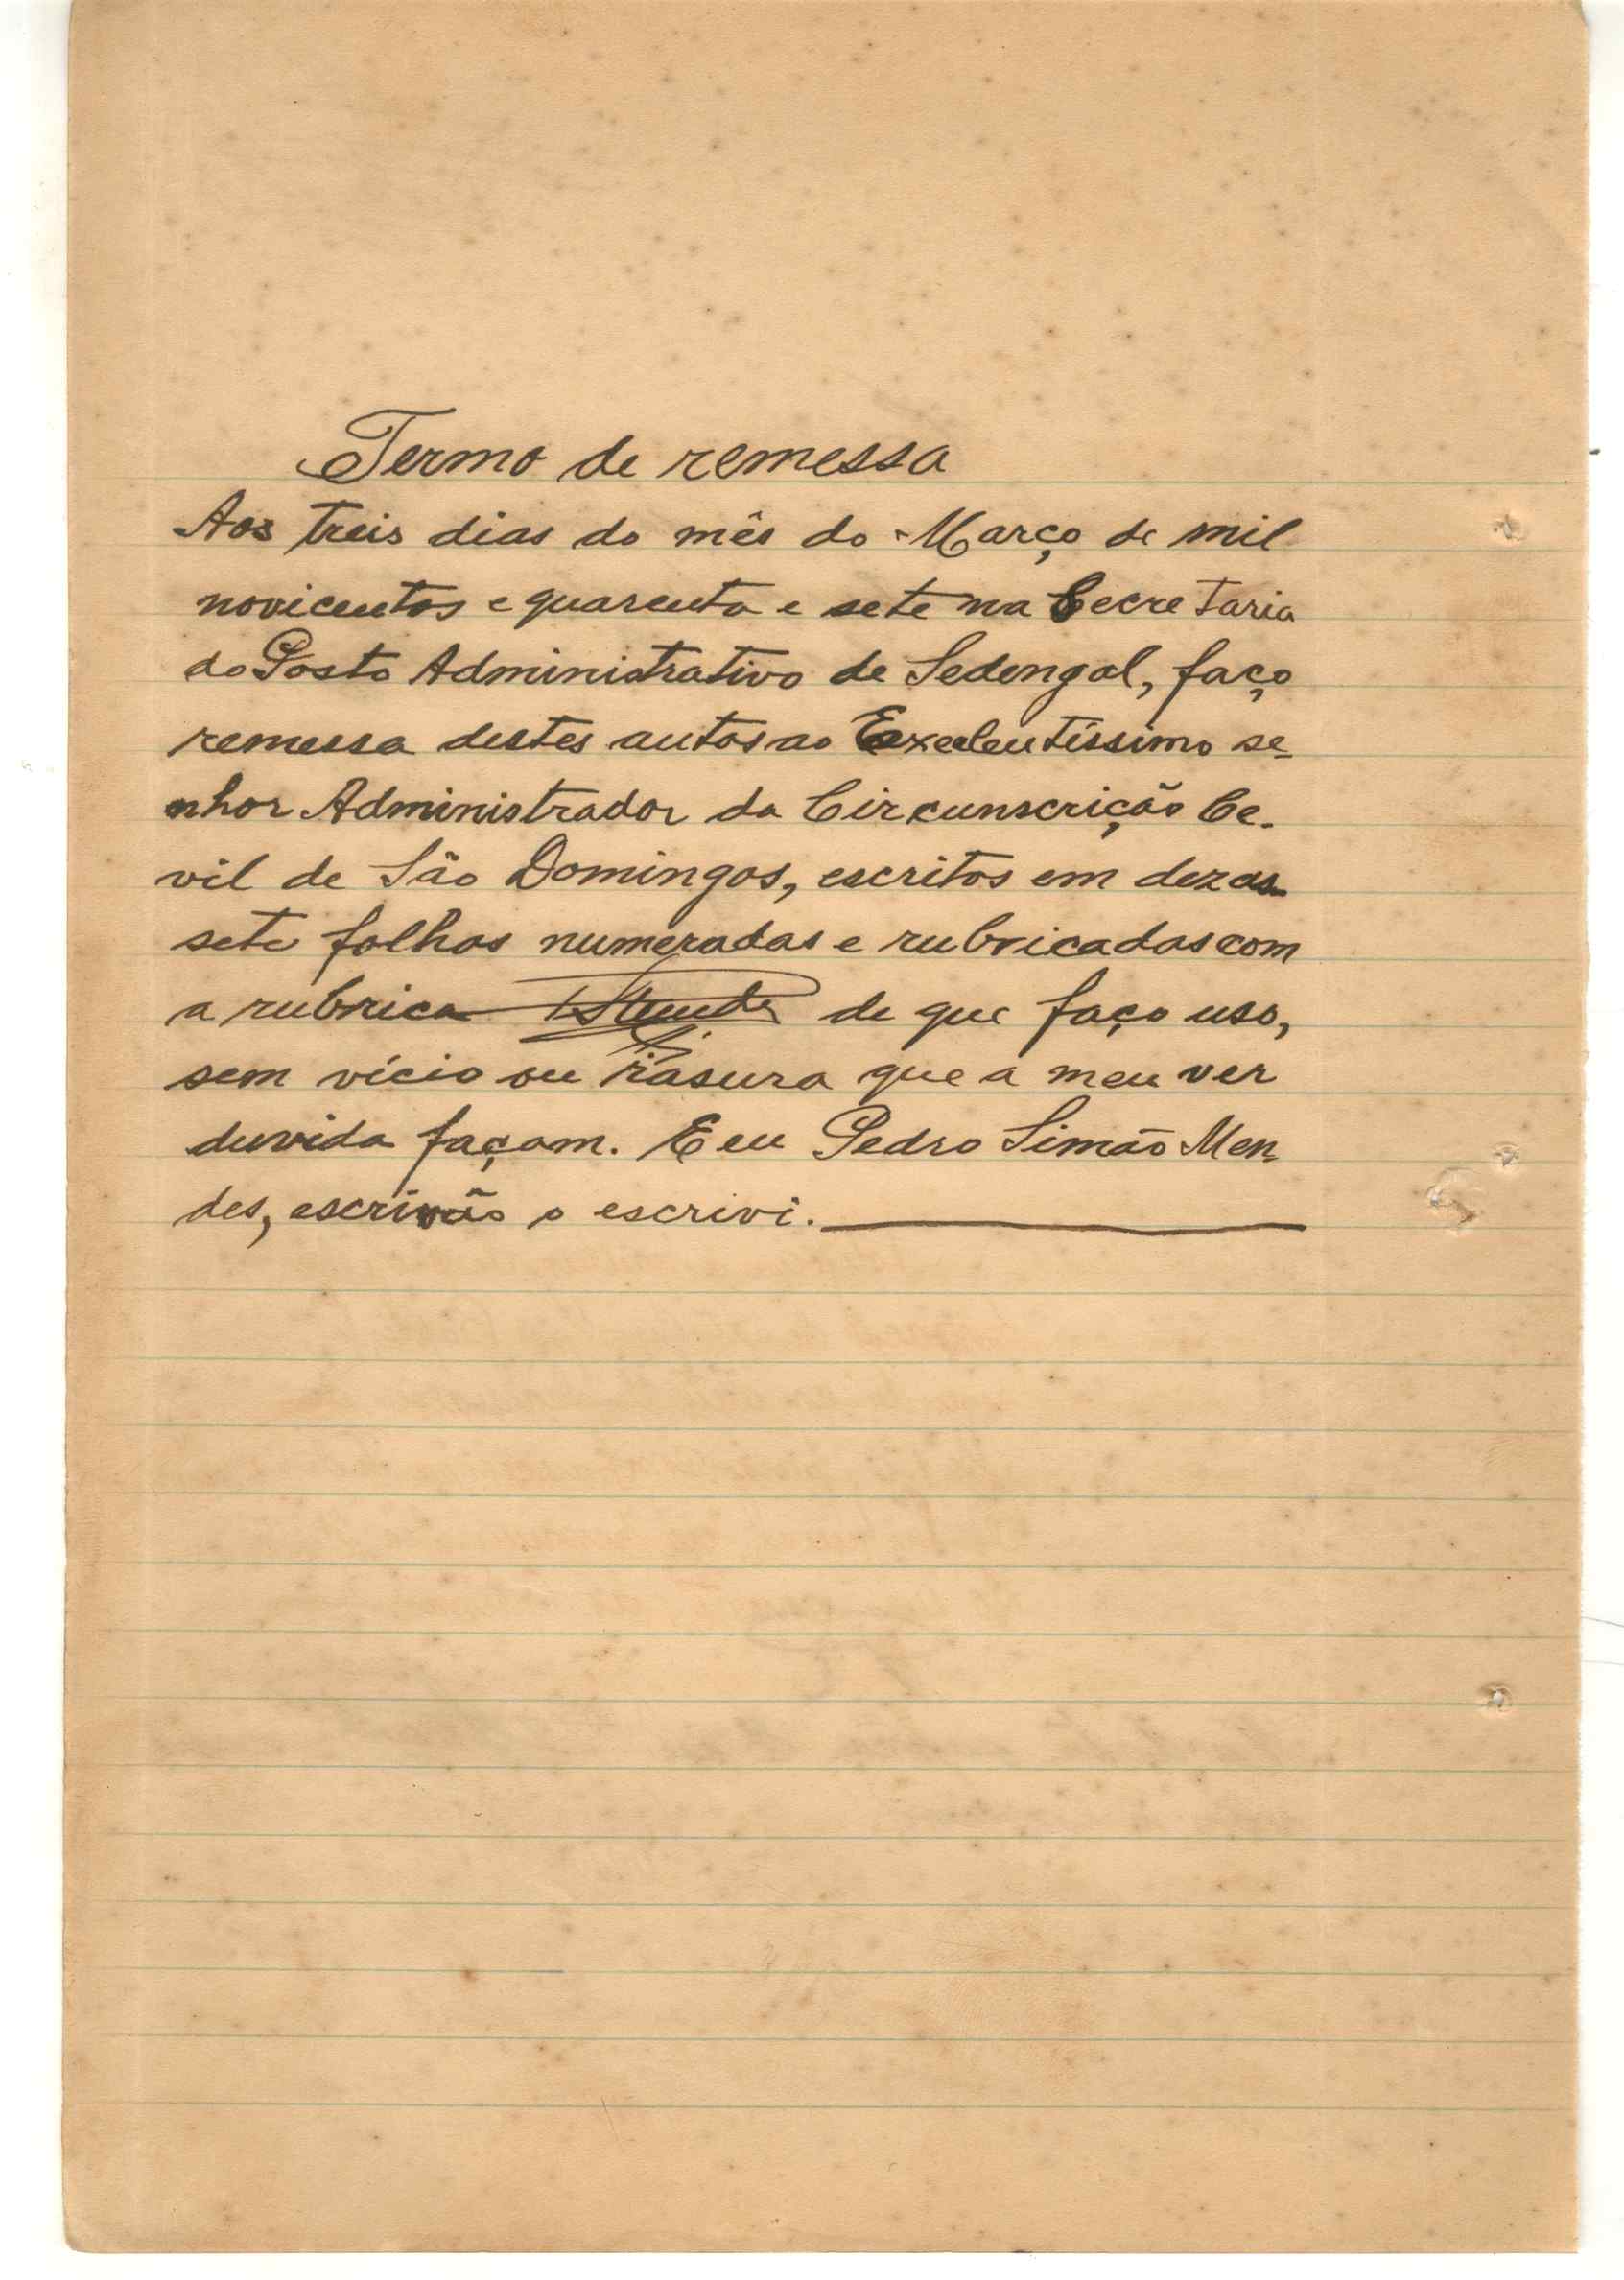 Termo de remessa
Aos treis dias do mês do Março de mil
novicentos e quarenta e sete na Secretaria
do Posto Administrativo de Sedengal, faço
remessa destes autos ao Excelentíssimo se-
nhor Administrador da Circunscrição Ce-
vil de São Domingos, escritos em dezas
sete folhas numeradas e rubricadas com
a rubrica de que faço uso,
sem vício ou rasura que a meu ver
duvida façam. E eu Pedro Simão Men-
des, escrivão o escrivi.